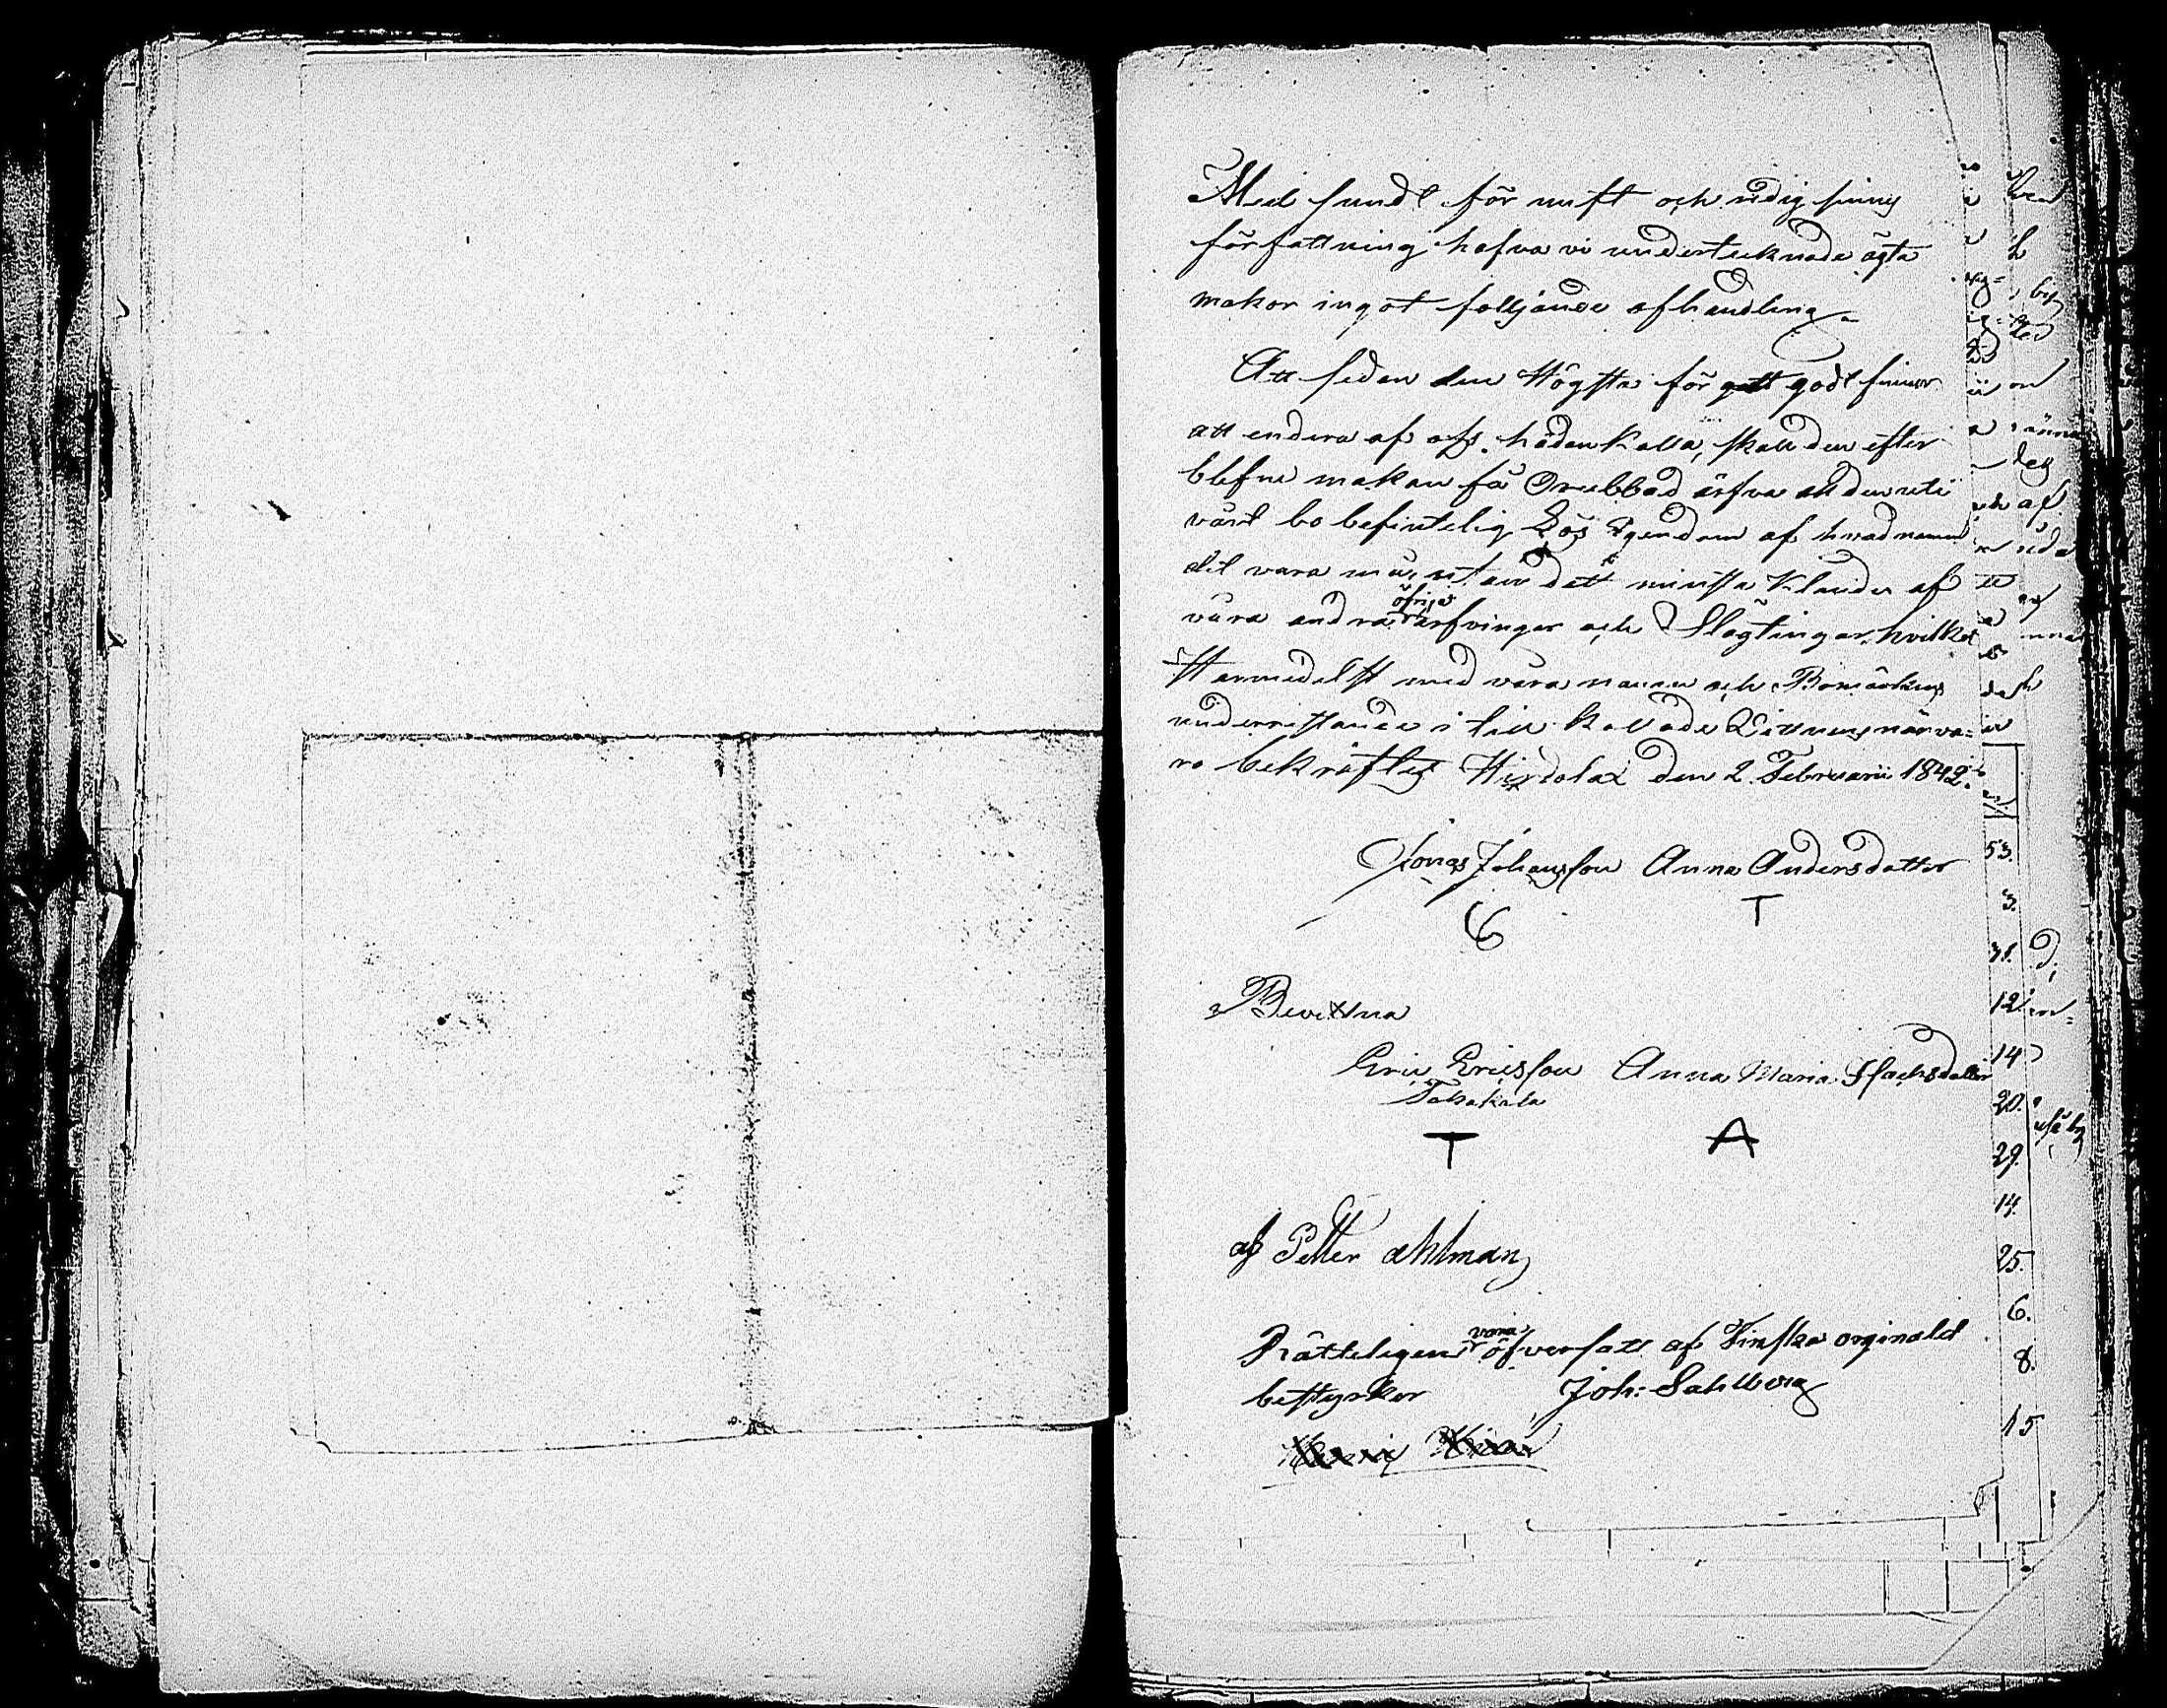 Med sundt för nuft och redig sinnes
författning hafva vi undertecknade ägta
makor ingot följande afhandling.
Att sedan den Högsta för gott godt finner
att endera af oss hädankalla, skall den efter
blefne makan få Orubbad ärfva all den uti
vårt bo befintelig Lös Egendom af hvad namn
det vara må, utan dett minsta Klander af
våra andra öfriga arfvingar och Slägtingar, hvilket
Harmedelst med våra namn och Bomärken
underrittande i till kallade Vittnens närva-
ro bekräftes Hirvolax den 2 Februarii 1842.
Jonas Johansson Anna Andersdotter
T
Bevittna
Eric Ericsson Anna Maria Isacksdotter
T A
af Petter Ahlman
Rätteligen vara öfversatt af Finska orginalet
bestyrker Joh: Sahlberg
53.
3.
31.
12
14
20.
29.
14.
25.
6.
8.
15